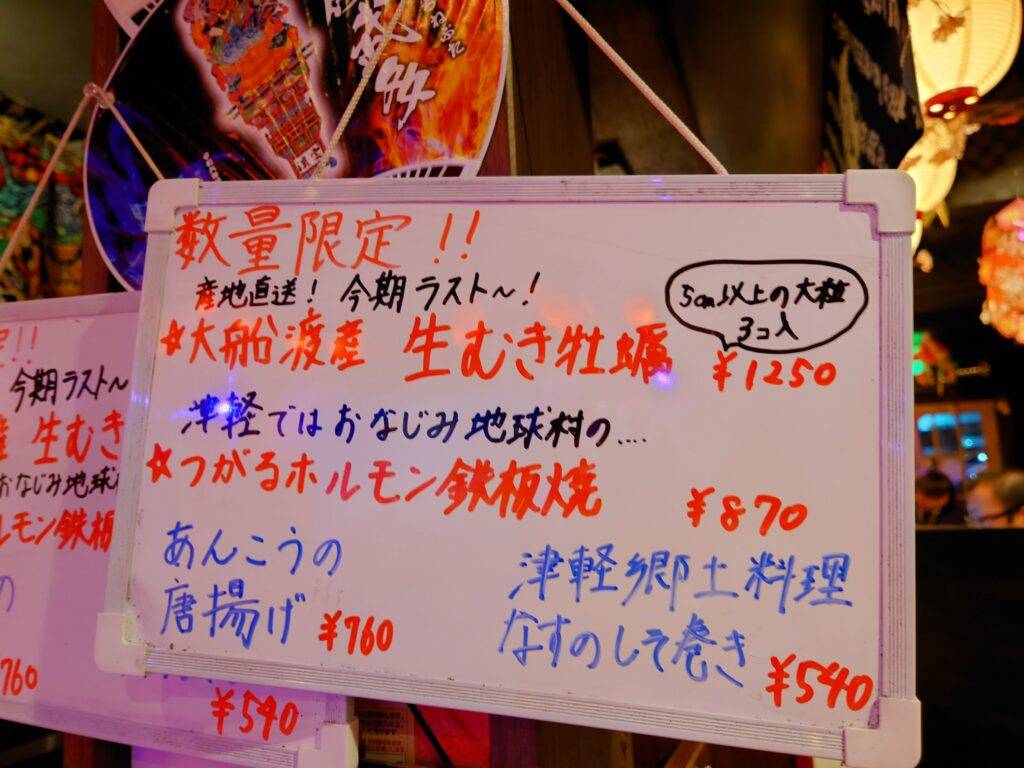 数量限定!!
産地直送! 今期ラスト〜!
5cm以上の大粒
3コ入
☆大船渡産 生むき牡蠣 ¥1250
津軽ではおなじみ地球村の....
☆つがるホルモン鉄板焼 ¥870
あんこうの
唐揚げ ¥760
津軽郷土料理
なすのしそ巻き ¥540
!!
今期ラスト〜
生むき
おなじみ地球
ルモン鉄板
の
760
¥540